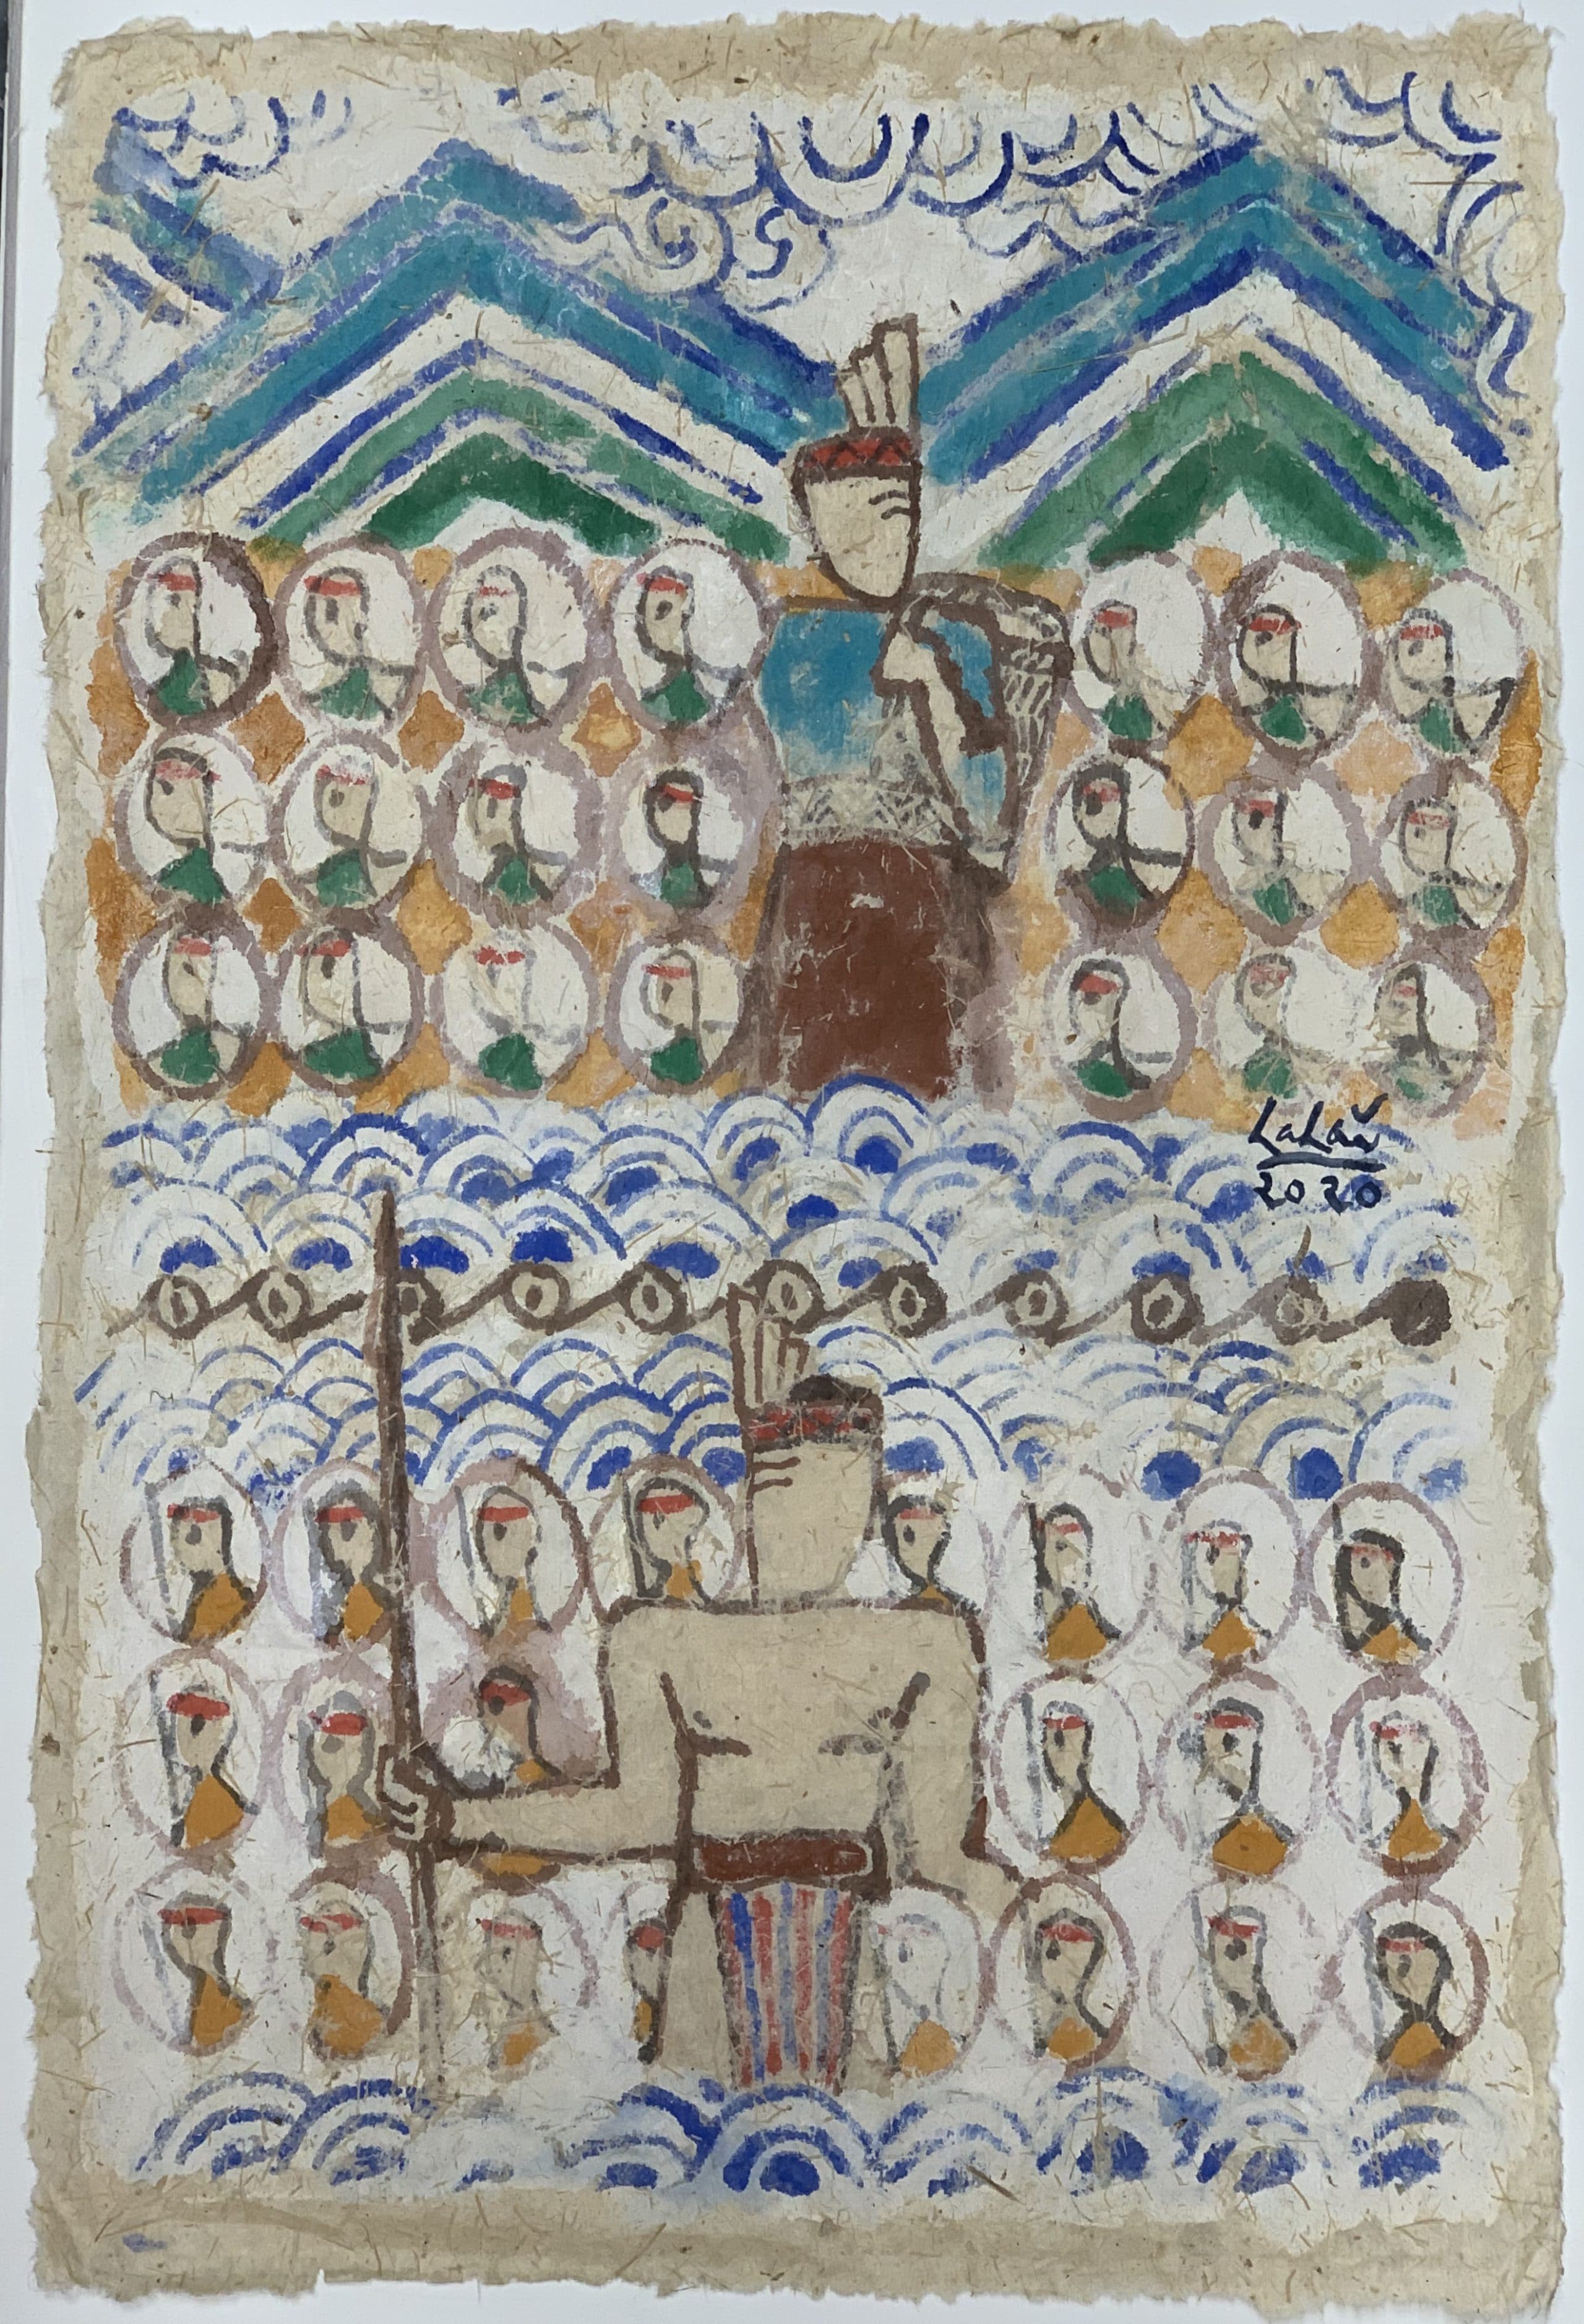 LaLan
2020